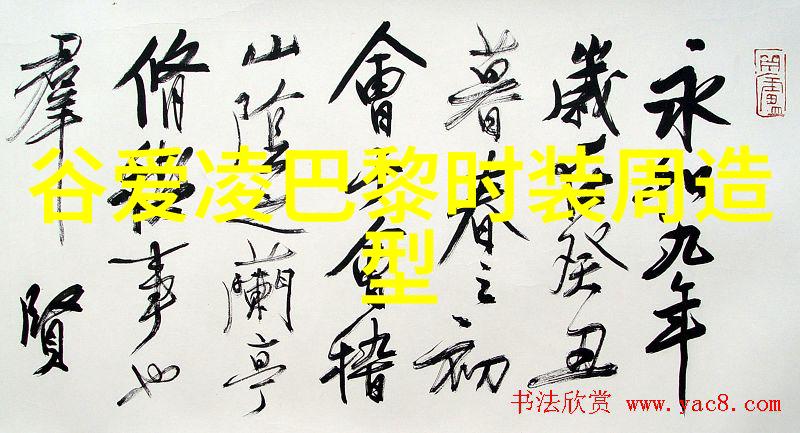 谷爱凌巴黎时装周造
型
永和九年
歲在癸丑
暮春之初
會會稽
山陰之蘭亭
脩禊事也
羣賢
书法欣赏 www.yac8.com